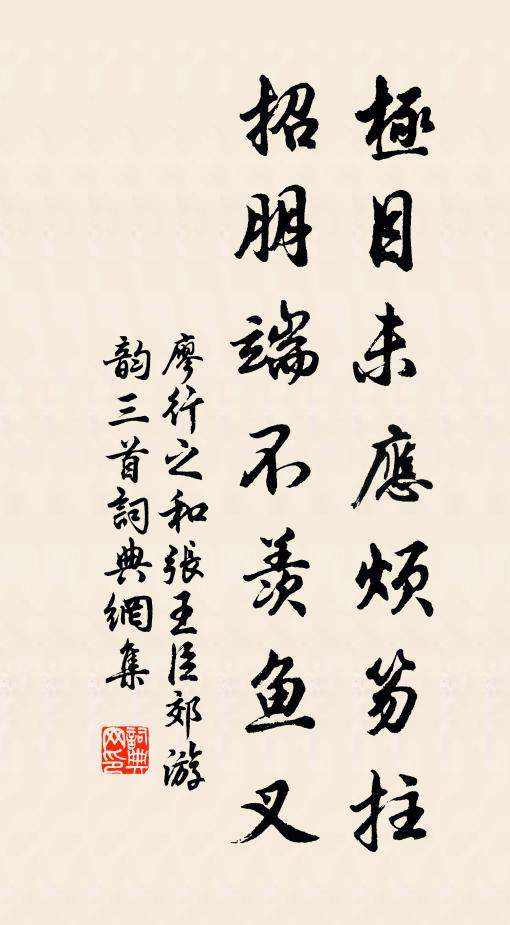 極目未應煩笏拄
招朋端不羨鱼叉
廖行之和張王臣郊游
韵三首詞典網集
詞典
网印